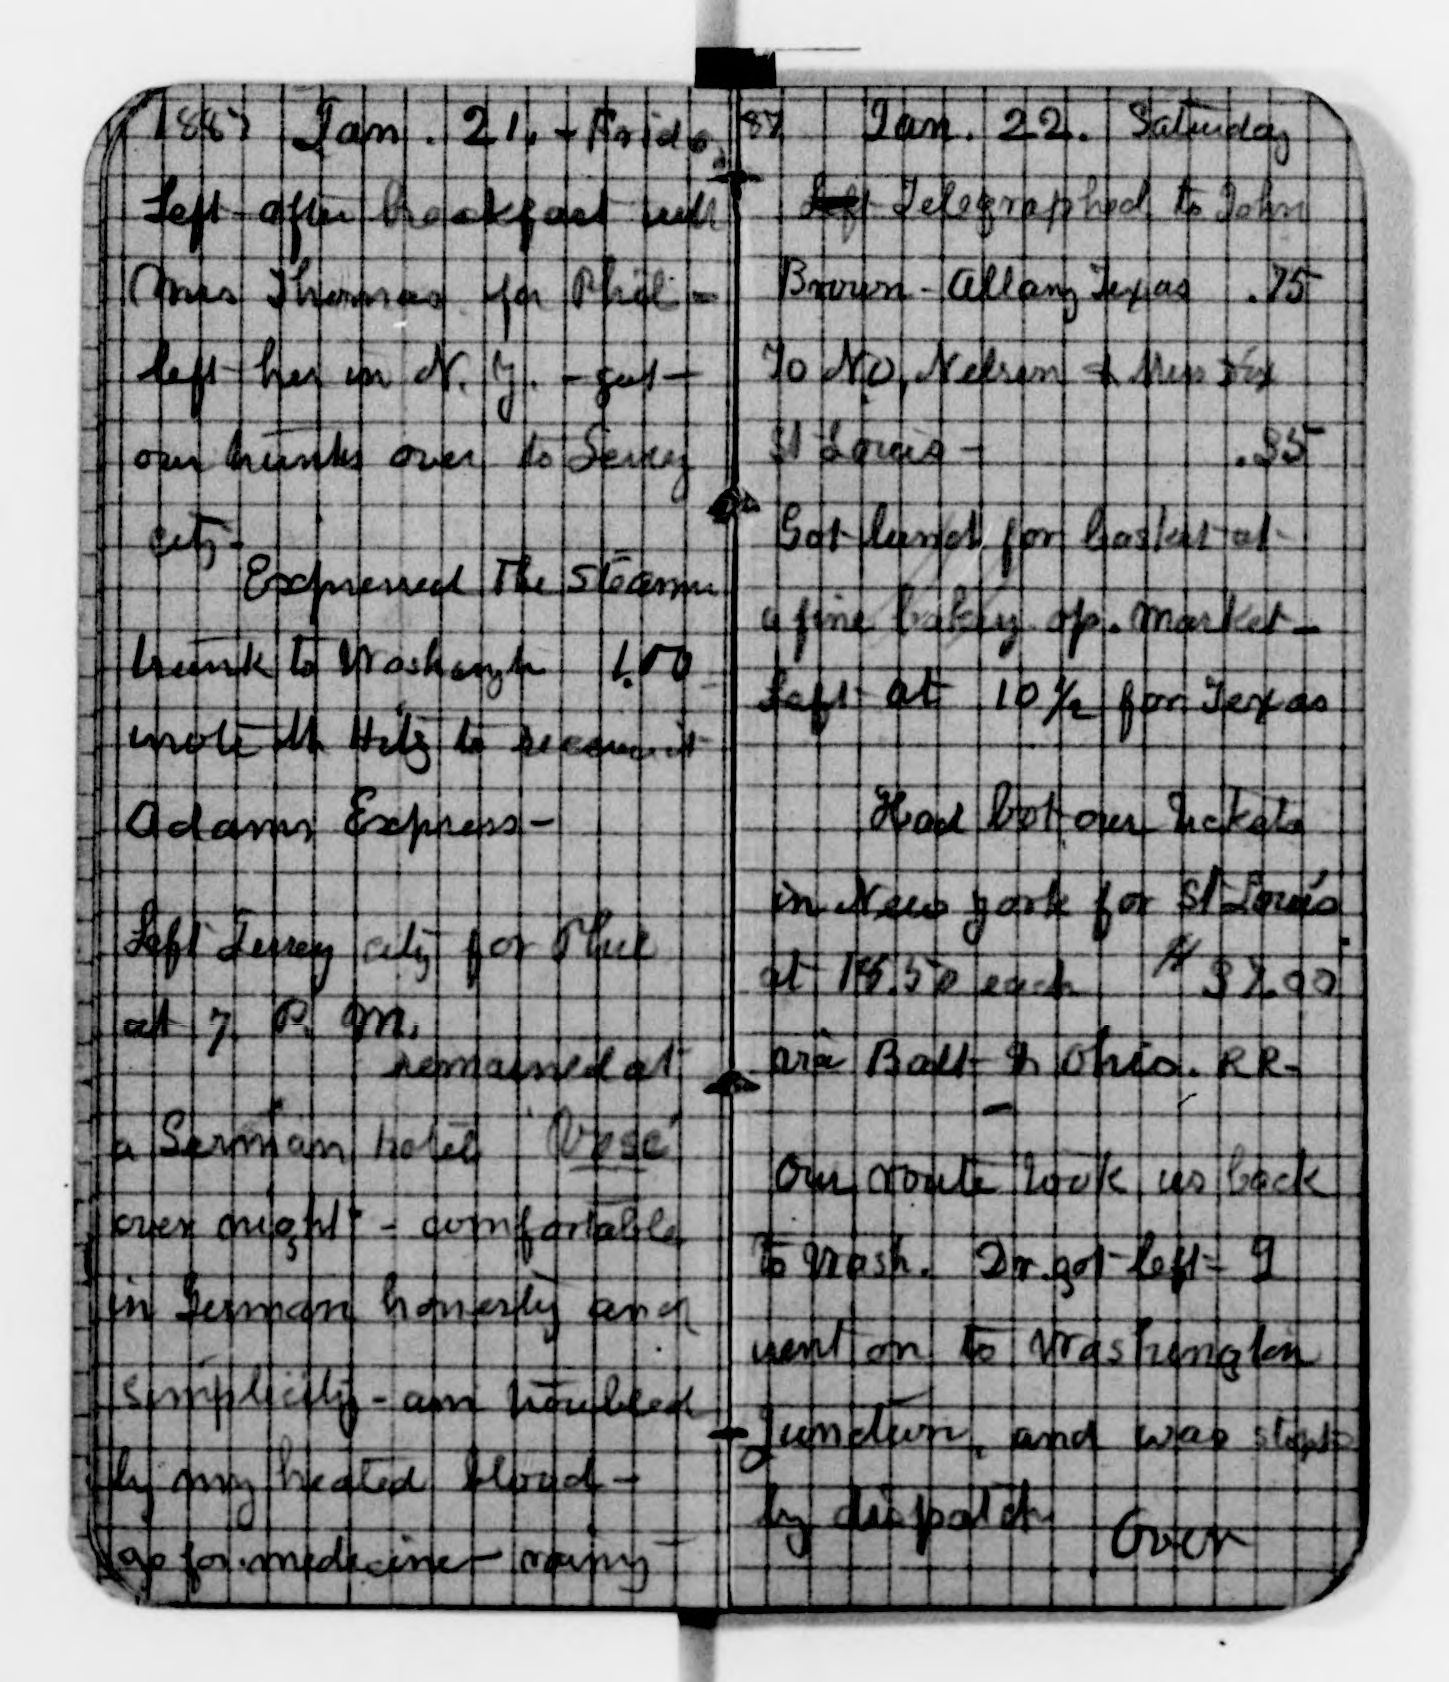 1887 Jan. 21. - Friday
Left after breakfast with
Miss Thomas for Phil -
left her in N. Y. - got
our trunks over to Jersey
city -
Expressed the steamer
trunk to Washingtn 1.50
wrote Mr Hitz to receive it
Adams Express -
Left Jersey city for Phil
at 7. P. M.
remained at
a German hotel
over night - comfortable
in German honesty and
simplicity - am troubled
by my heated blood -
go for medicine - rainy
87 Jan. 22. Saturday
Left Telegraphed to John
Brown - Albany Texas .75
To No, Nelson & Miss Fix
St Louis - .35
Got lunch for basket at
a fine bakery op. Market -
Left at 10 1/2 for Texas
Had bot our tickets
in New York for St Louis
at 18.50 each $ 37.00
via Balt & Ohio. RR -
Our route took us back
to Wash. Dr. got left - I
went on to Washington
Junction, and was stopt
by dispatch Over